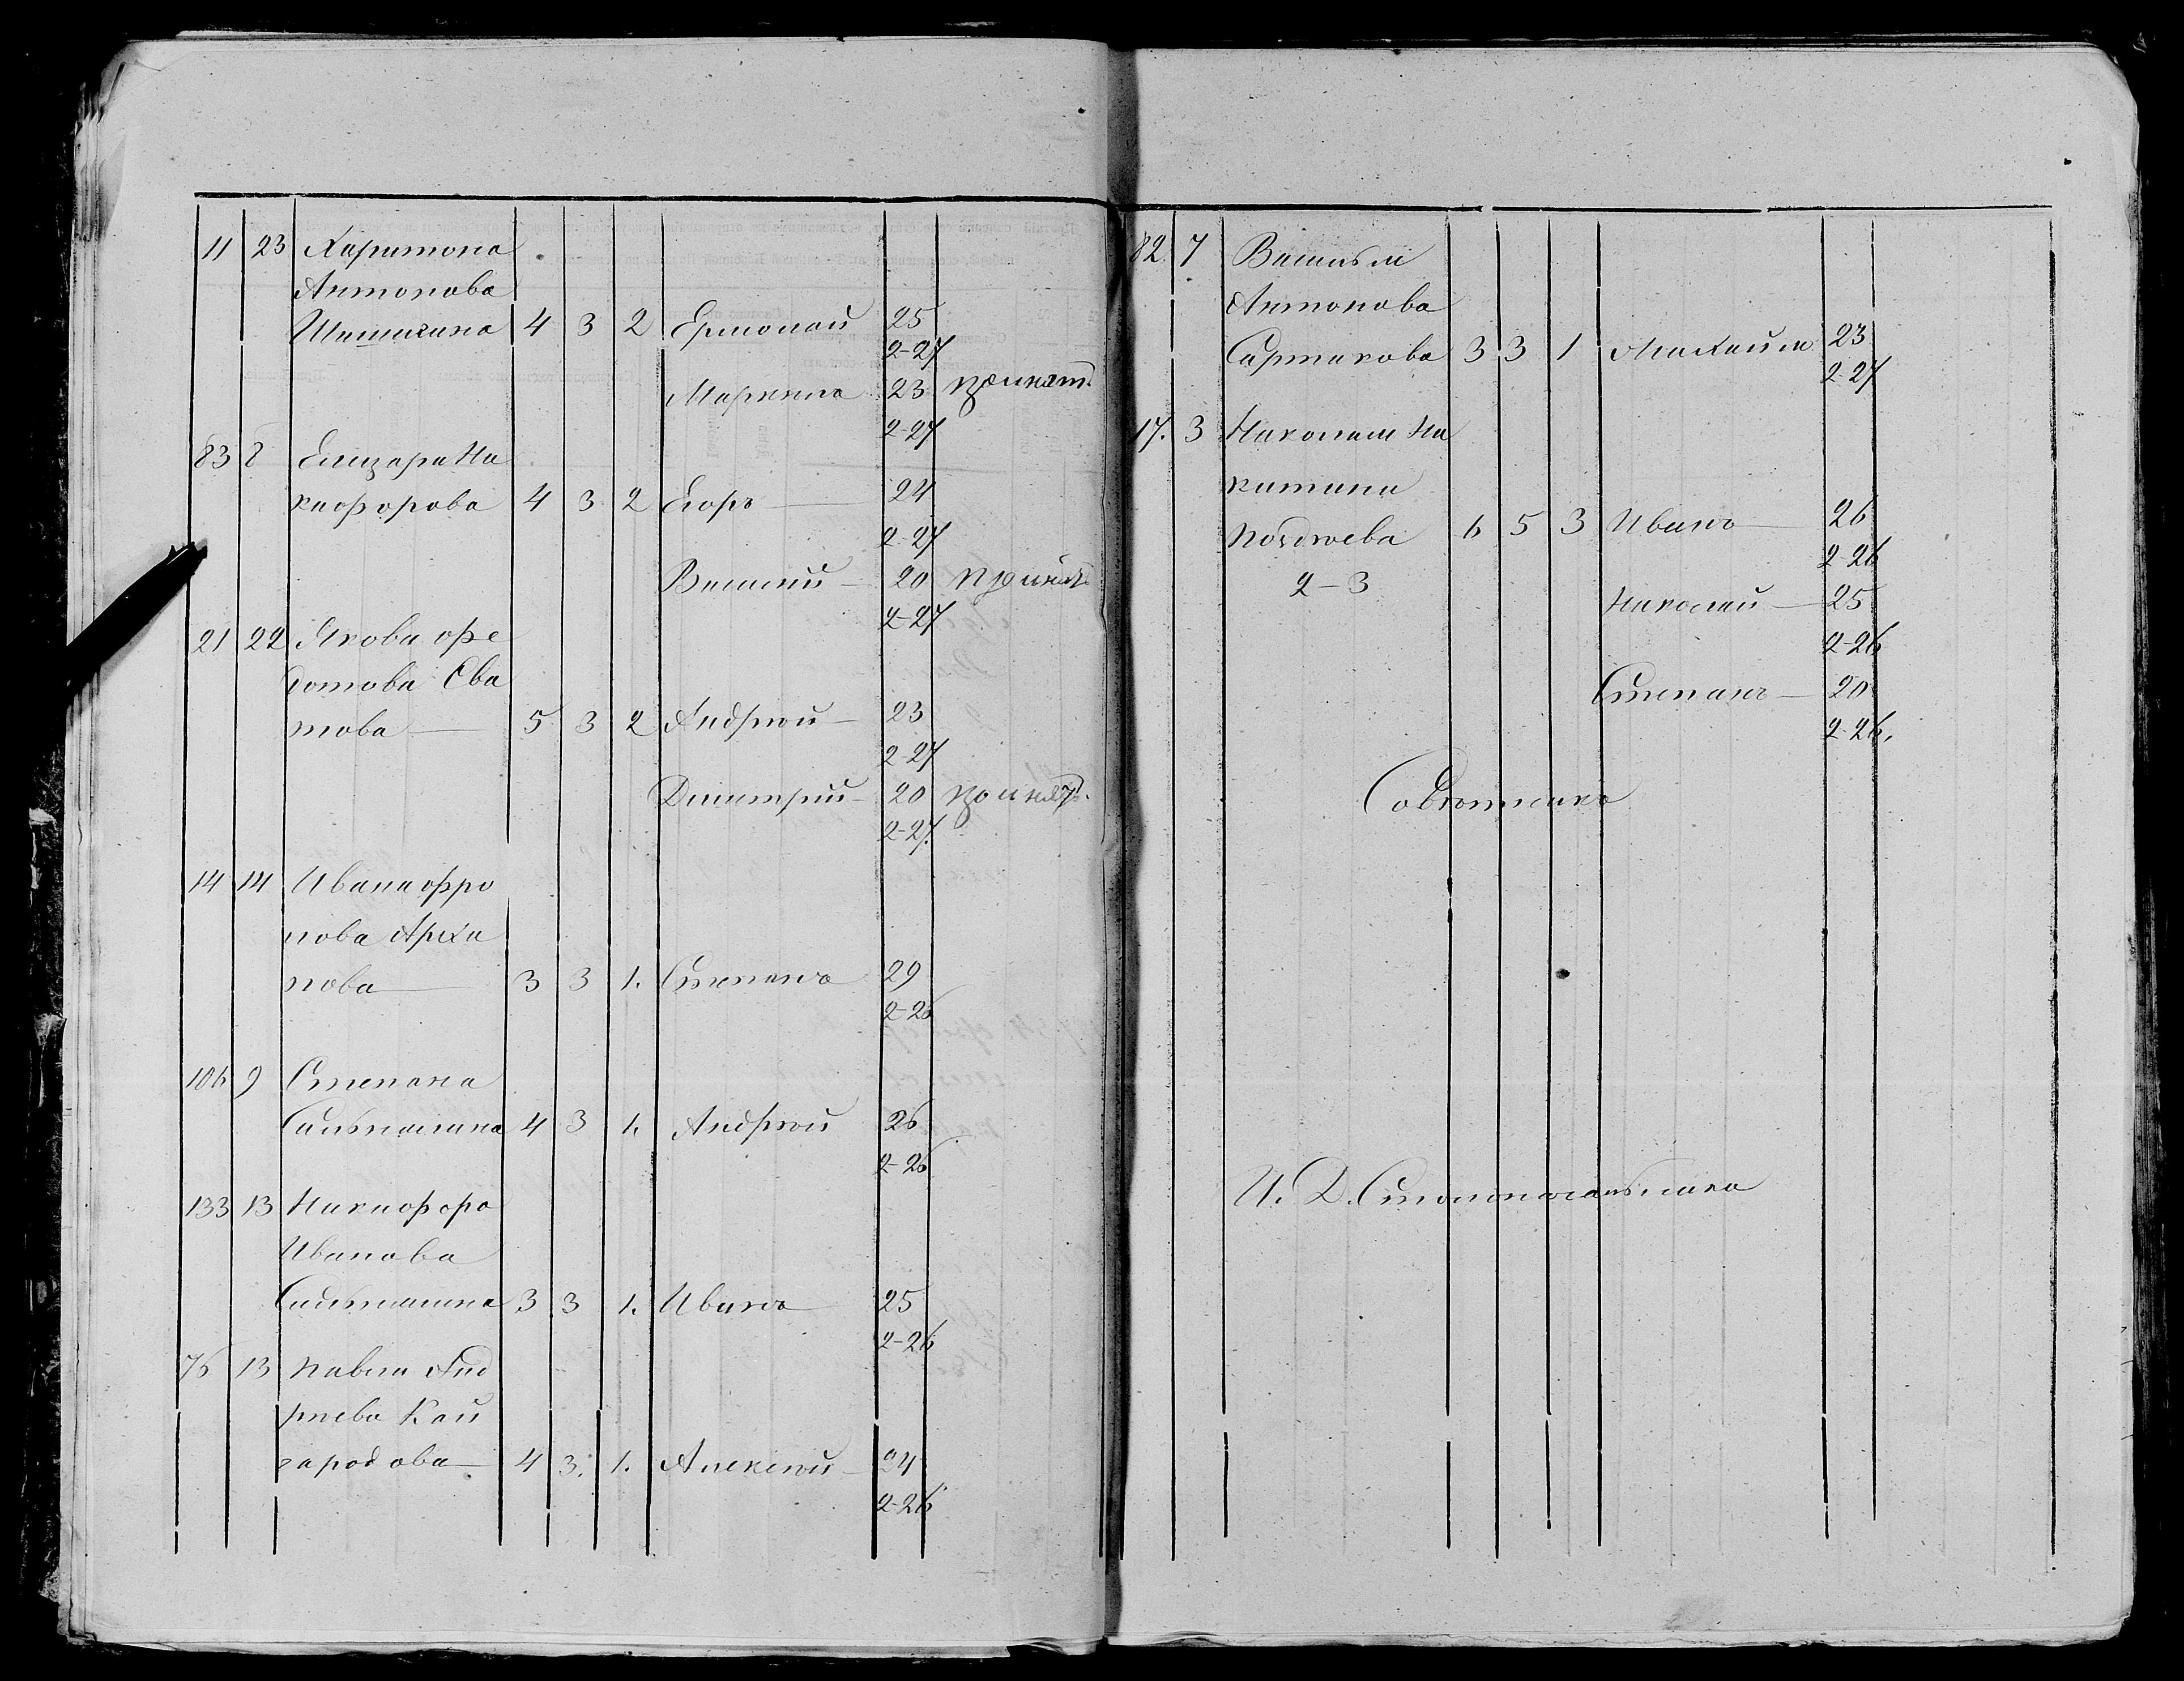 11 23 Харитона
Антонова
Шишигина 4 3 2 Ермолай 25
2-27
Маркелъ 23 принятъ
2-27
83 8 Елизара Ни
кифорова 4 3 2 Егоръ 24
2-27
Василий 20 принятъ
2-27
21 22 Якова Фе
дотова Ева
това 5 3 2 Андрей 23
2-27
Дмитрий 20 принятъ.
2-27.
14 14 Ивана Фро
лова Архи
пова 3 3 1. Степанъ 29
2-26
106 9 Степана
4 3 1. Андрей 26
2-26
133 13 Никифора
Иванова
3 3 1. Иванъ 25
2-26
76 13 Павла Анд
реева Кай
городова 4 3. 1. Алексей 24
2-26
82 7 Василья
Антонова
Сартакова 3 3 1 Михайло 23
2-27
17. 3 Николая Ни
китина
Поздеева 6 5 3 Иванъ 26
2-3
2-26
Николай 25
2-26
Степанъ 20
2-26.
Советникъ
И. Д. Столоначальника